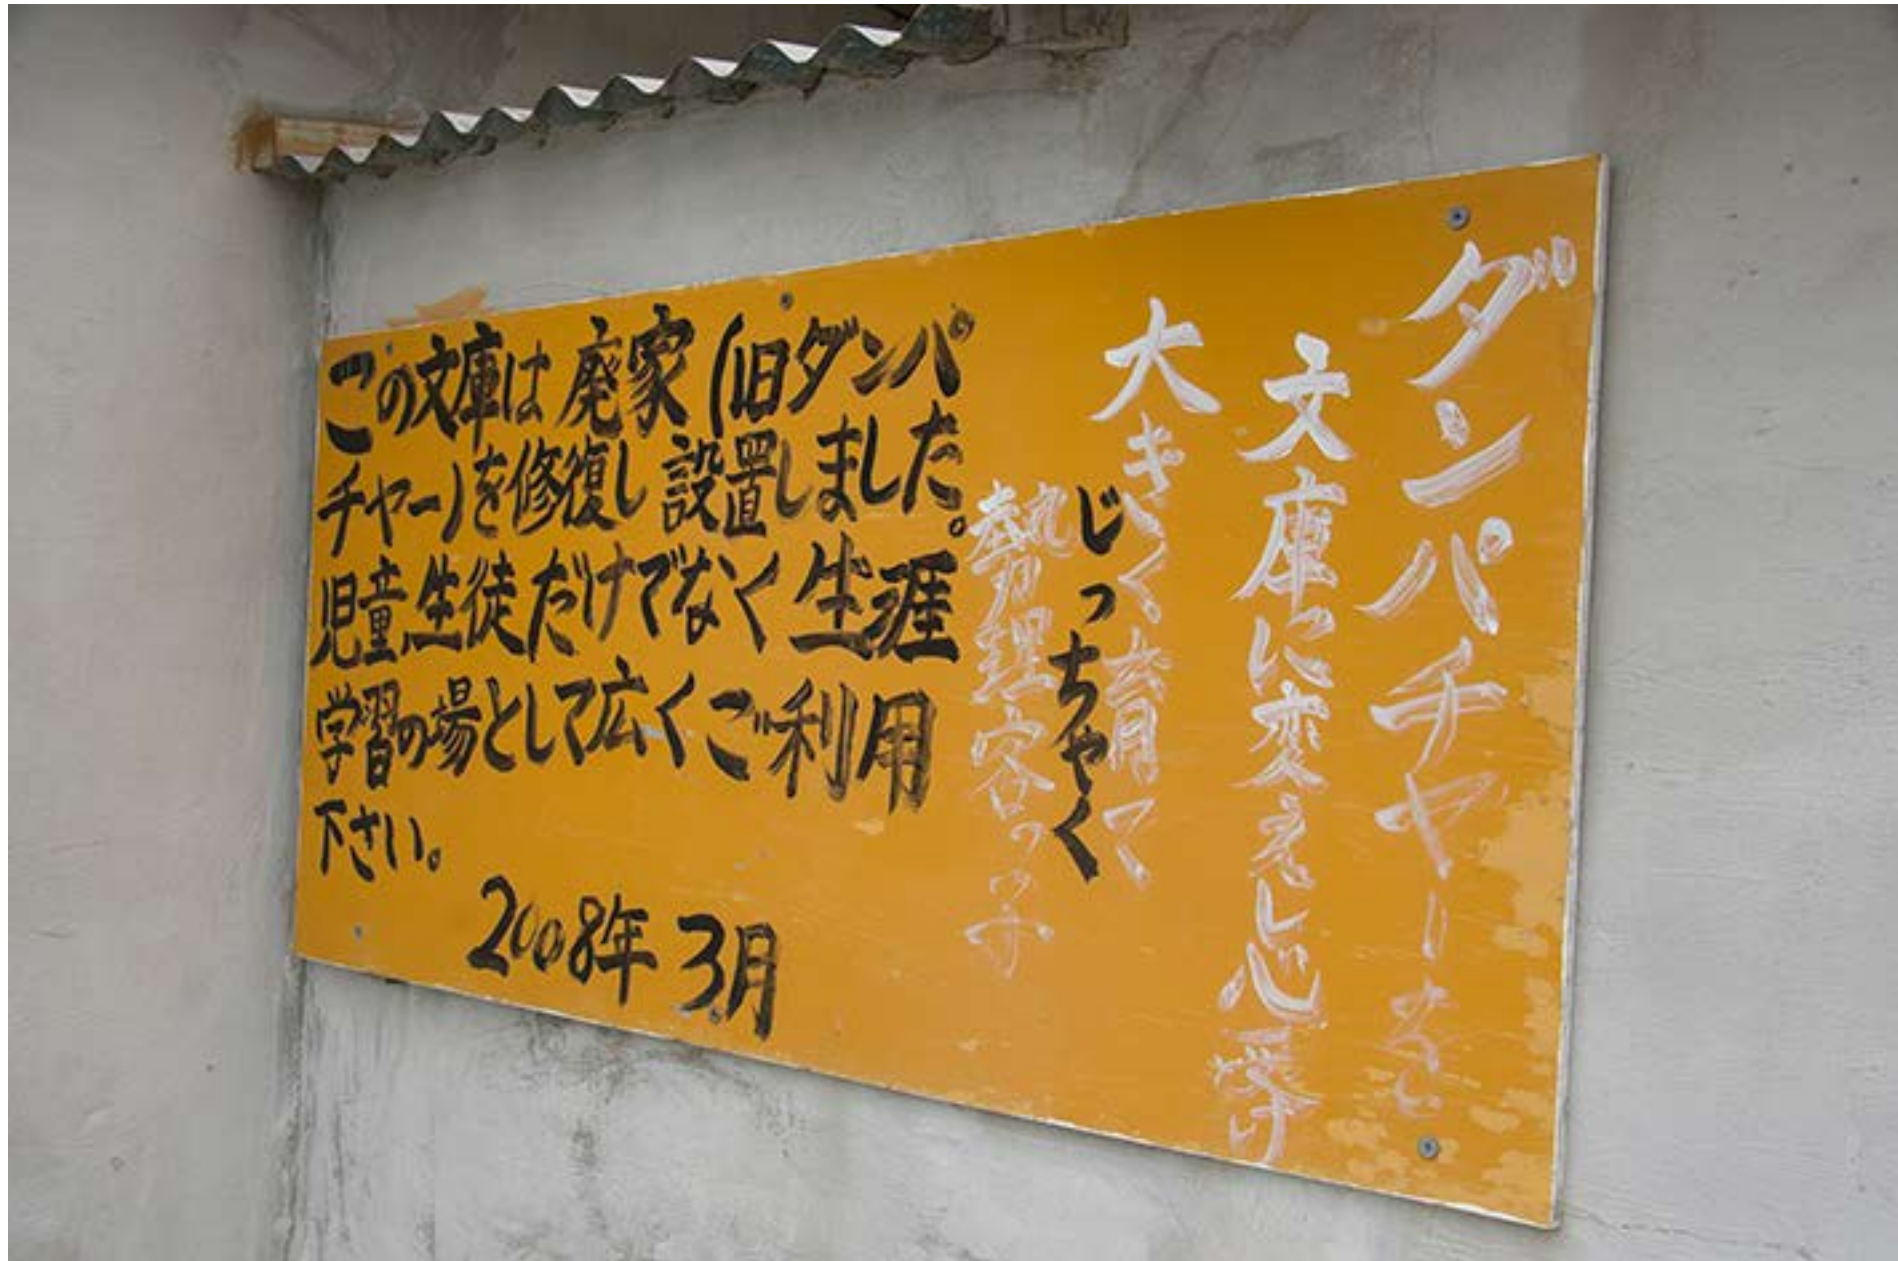 ダンパチヤー
文庫に変えし心
大きく育て
じっちゃく
勢理客っ子
この文庫は廃家(旧ダンパ
チャー)を修復し設置しました。
児童生徒だけでなく生涯
学習の場として広くご利用
下さい。
2008年3月